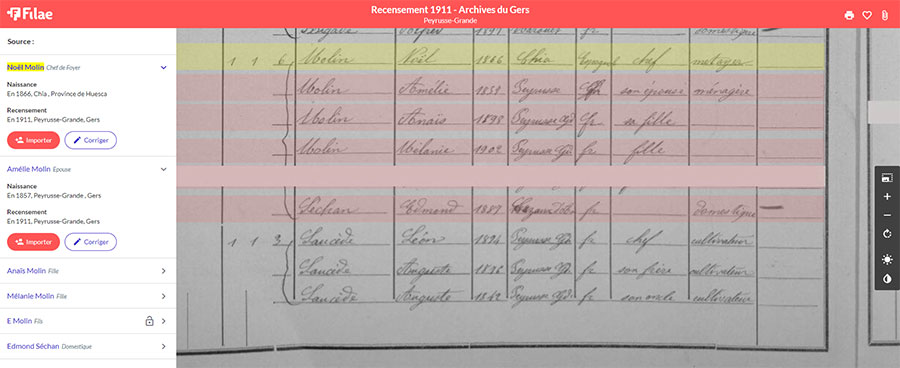 Filae
Recensement 1911 - Archives du Gers
Peyrusse-Grande
Source :
Noël Molin Chef de Foyer
Naissance
En 1866, Chia , Province de Huesca
Recensement
En 1911, Peyrusse-Grande, Gers
Importer Corriger
Amélie Molin Epouse
Naissance
En 1857, Peyrusse-Grande , Gers
Recensement
En 1911, Peyrusse-Grande, Gers
Importer Corriger
Anaïs Molin Fille
Mélanie Molin Fille
E Molin Fils
Edmond Séchan Domestique
1 1 6 Molin Noël 1866 Chia Espagnol chef métayer
Molin Amélie 1858 Peyrusse fr son épouse ménagère
Molin Anaïs 1898 Peyrusse Gde fr sa fille
Molin Mélanie 1902 Peyrusse Gde fr fille
Séchan Edmond 1887 fr domestique
1 1 3 Laucède Léon 1894 Peyrusse Gde fr chef cultivateur
Laucède Auguste 1896 Peyrusse Gde fr son frère cultivateur
Laucède Auguste 1842 Peyrusse Gde fr son oncle cultivateur